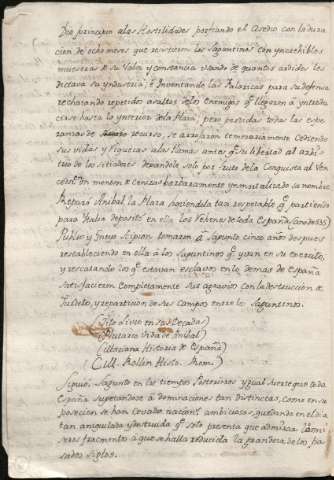 Dio principio a las Hostilidades porfiando el Asedio con la dura
cion de ocho meses que resistieron los Saguntinos con yncreibles
muestras de su Valor y constancia usando de quantos ardides les
dictava su yndustria; è Inventando las Falaricas para su defensa
rechazando repetidos asaltos de los Enemigos qe llegaron à yntrodu
cirse hasta lo ynterior de la Plaza; pero perdidas todas las espe
ranzas de recurso, se arrojaron temerariamente Cediendo
sus vidas y riquezas a las llamas antes qe su libertad al arbi
trio de los sitiadores dexandoles solo por fruto de la Conquista al Ven
cedor un monton de Cenizas barbaramente ynmortalizado su nombre
Reparò Anibal la Plaza poniendola tan respetable qe partiendo
para Italia depositò en ella los Rehenes de toda España
Publio y Gneyo Scipion tomaron à Sagunto cinco años despues
restableciendo en ella a los Saguntinos qe yvan en su exercito,
y rescatando los qe estavan esclavos en lo demas de España
satisfacieron Completamente sus agravios con la destruccion de
Turdeto, y reparticion de sus Campos entre los Saguntinos.
(Tito Livio en sus Decadas)
(Plutarco Vida de Anibal)
(Mariana Historia de España)
(Rollin Histo. Rom.)
Siguio Sagunto en los tiempos Posteriores ygual suerte que toda
España sugetandose à dominaciones tan distintas, como en su
posecion se han Cevado nacions ambiciosas; quedando en el dia
tan aniquilada y destruida qe solo presenta que admirar
seros fragmentos a que se halla reducida la grandeza de los pa
sados siglos.